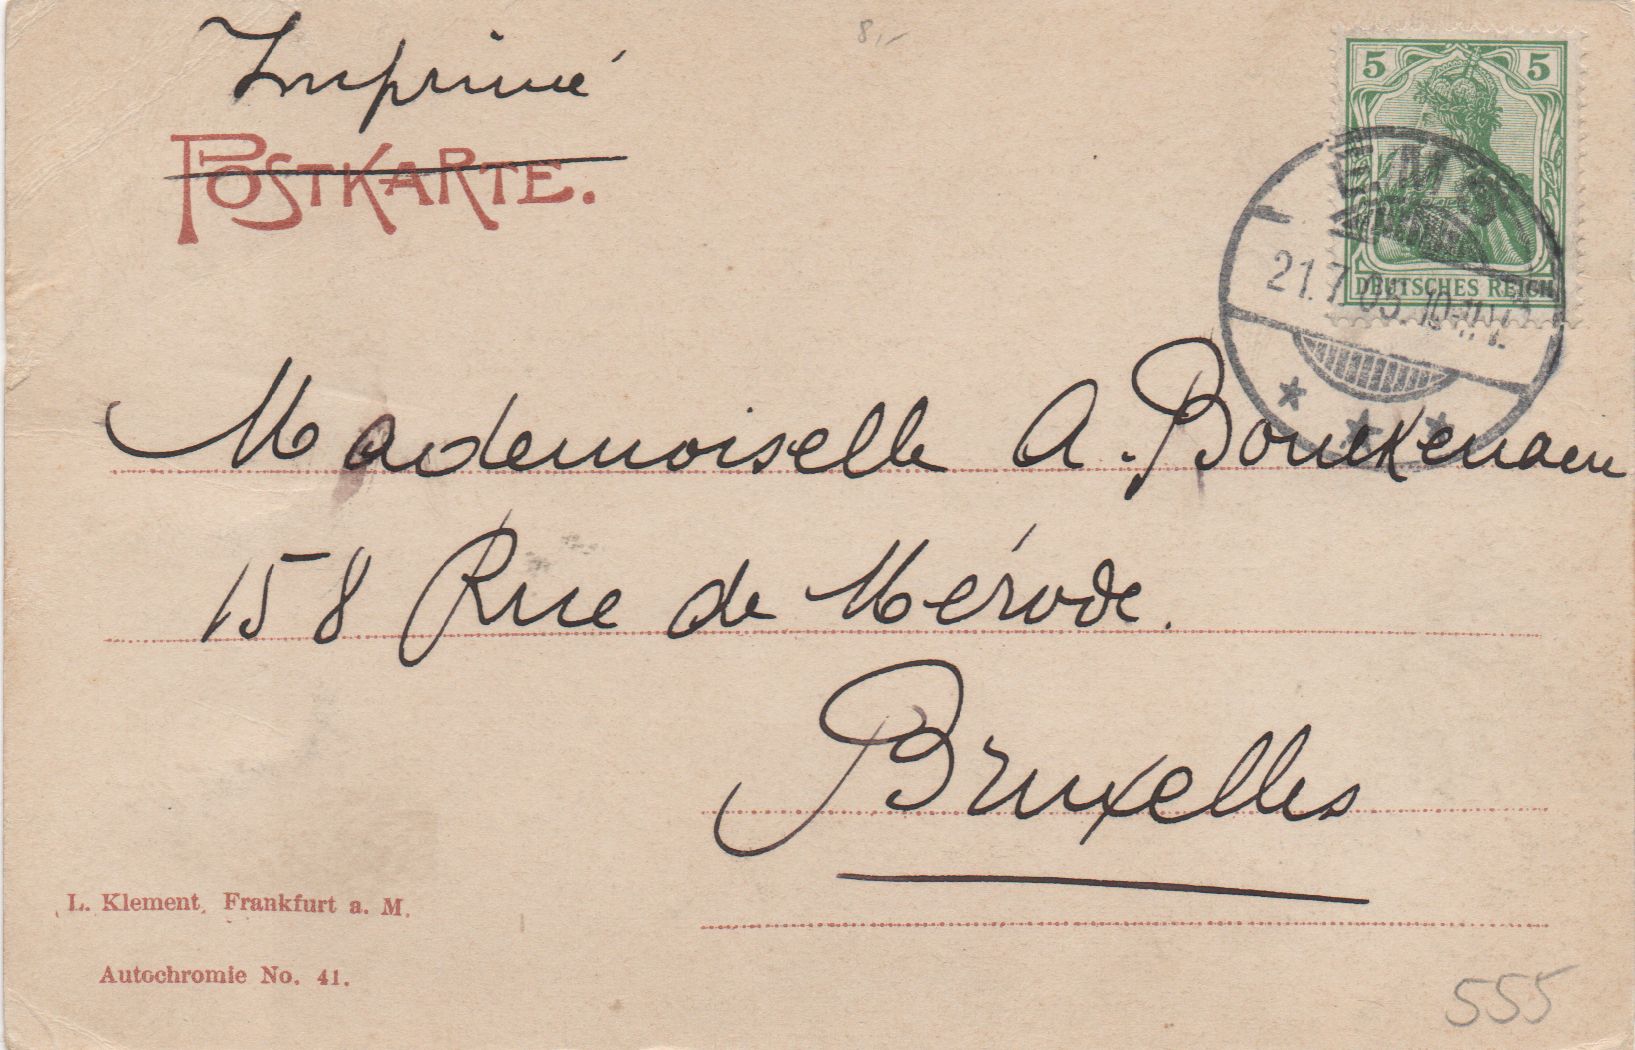 Imprimé
8,-
POSTKARTE.
5 5
DEUTSCHES REICH
EMS
21.7.05. 10-11V.
Mademoiselle A. Bouckenaere
158 Rue de Mérode.
Bruxelles
L. Klement, Frankfurt a. M.
Autochromie No. 41.
555